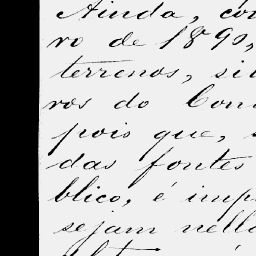 Ainda, con
ro de 1890,
terrenos, si
ros do Con
pois que,
das fontes
blico, é imp
sejam nella